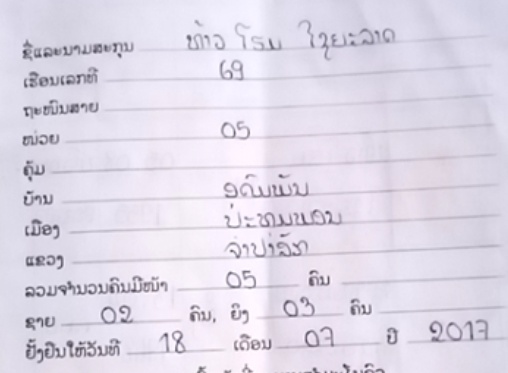 ຊື່ແລະນາມສະກຸນ ທ້າວ ໂຮມ ໄຊຍະລາດ
ເຮືອນເລກທີ 69
ຖະໜົນສາຍ
ໜ່ວຍ 05
ຄຸ້ມ
ບ້ານ
ເມືອງ ປະທຸມພອນ
ແຂວງ ຈຳປາສັກ
ລວມຈຳນວນຄົນມີໜ້າ 05 ຄົນ
ຊາຍ 02 ຄົນ, ຍິງ 03 ຄົນ
ຢັ້ງຢືນໃຫ້ວັນທີ 18 ເດືອນ 07 ປີ 2017